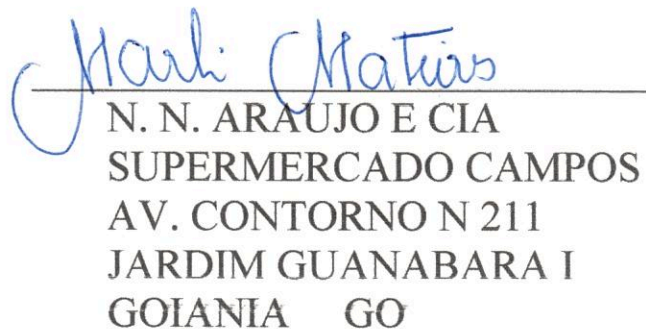 Marli Matias
N. N. ARAUJO E CIA
SUPERMERCADO CAMPOS
AV. CONTORNO N 211
JARDIM GUANABARA I
GOIANIA GO